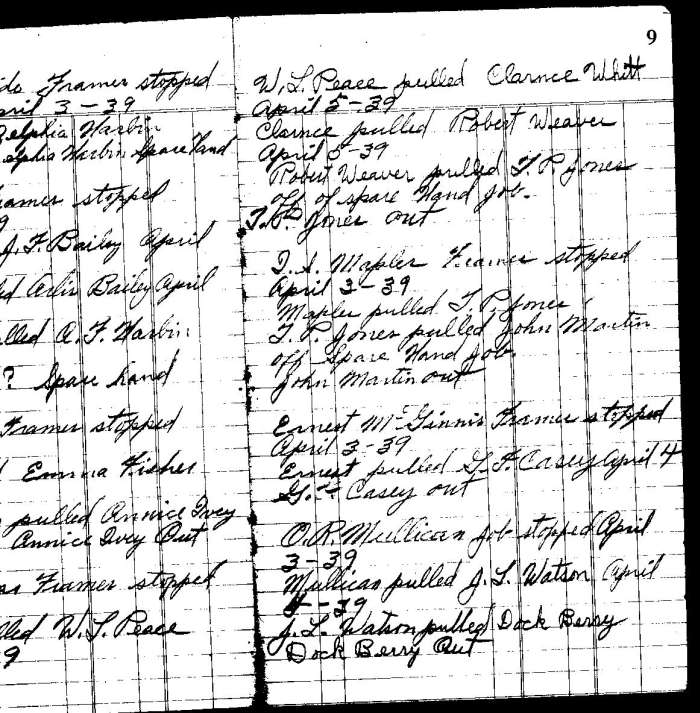 9
Framer stopped
April 3-39
Delphia Harbin
Delphia Harbin Spare Hand
Framer stopped
9
J. F. Bailey April
Arlis Bailey April
pulled O. F. Harbin
? Spare hand
Framer stopped
Emma Fisher
pulled Annice Ivey
Annice Ivey Out
Framer stopped
pulled W. L. Peace
9
W. L. Peace pulled Clarnce Whitt
April 5-39
Clarnce pulled Robert Weaver
April 5-39
Robert Weaver pulled T. P. Jones
off of spare Hand job.
T. P. Jones out
T. S. Mapler Framer stopped
April 3-39
Mapler pulled T. P. Jones
T. P. Jones pulled John Martin
off Spare Hand job
John Martin out
Ernest McGinnis Framer stopped
April 3-39
Ernest pulled G. F. Casey April 4
G. F. Casey out
O. R. Mullican job stopped April
3-39
Mullican pulled J. L. Watson April
5-39
J. L. Watson pulled Dock Berry
Dock Berry Out